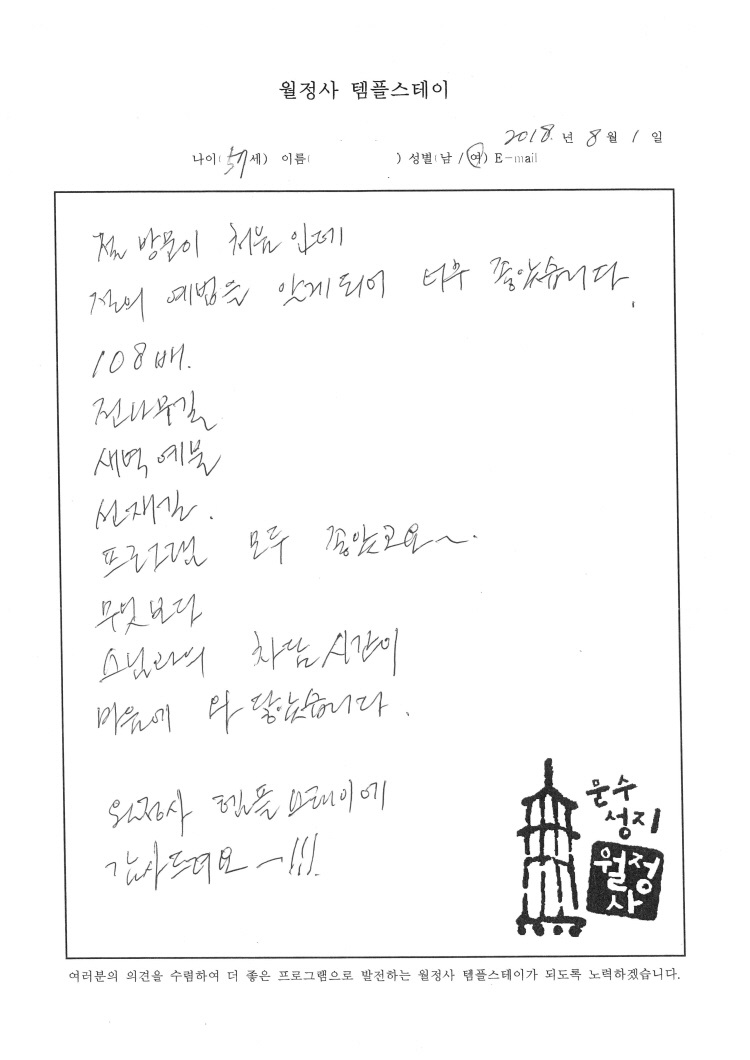 월정사 템플스테이
2018. 년 8 월 1 일
나이( 57 세) 이름( ) 성별(남 / 여) E-mail
절 방문이 처음 인데
절의 예법을 알게되어 너무 좋았습니다.
108배.
전나무길
새벽 예불
선재길.
프로그램 모두 좋았고요~.
무엇보다
스님과의 차담 시간이
마음에 와 닿았습니다.
월정사 템플스테이에
감사드려요~!!!
문수
성지
월정
사
여러분의 의견을 수렴하여 더 좋은 프로그램으로 발전하는 월정사 템플스테이가 되도록 노력하겠습니다.